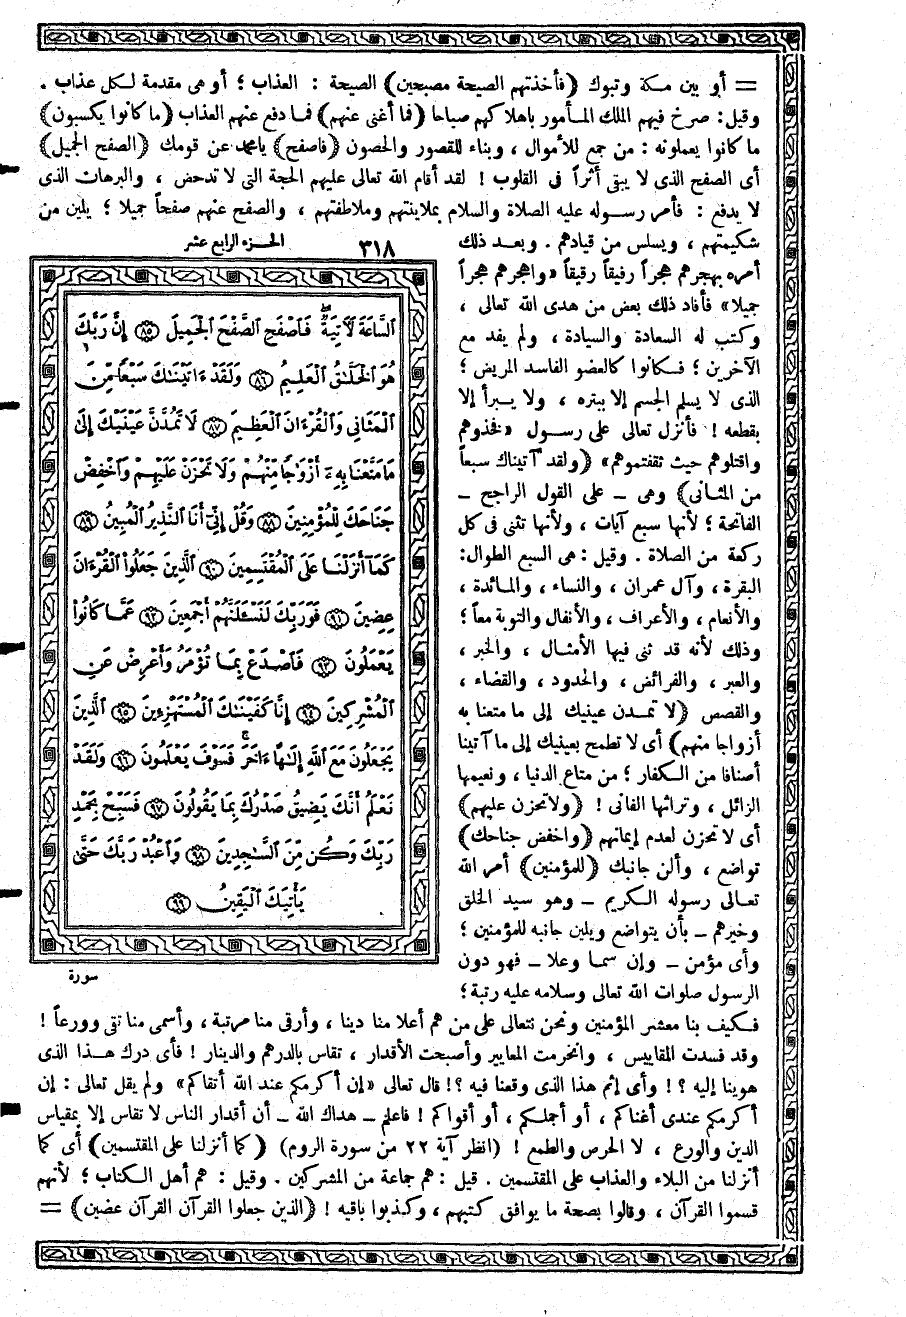 = أو بين مكة وتبوك (فأخذتهم الصيحة مصبحين) الصيحة : العذاب ؛ أو هى مقدمة لكل عذاب .
وقيل : صرخ فيهم الملك المأمور باهلاكهم صباحا (فما أغنى عنهم) فما دفع عنهم العذاب (ما كانوا يكسبون)
ما كانوا يعملونه : من جمع للأموال ، وبناء للقصور والحصون (فاصفح) يامحمد عن قومك (الصفح الجميل)
أى الصفح الذى لا يبقى أثراً فى القلوب ! لقد أقام الله تعالى عليهم الحجة التى لا تدحض ، والبرهات الذى
لا يدفع : فأمر رسوله عليه الصلاة والسلام بملاينتهم وملاطفتهم ، والصفح عنهم صفحاً جميلا ؛ يلين من
شكيمتهم ، ويسلس من قيادهم . وبعد ذلك
أمره بهجرهم هجراً رفيقاً رقيقاً «واهجرهم هجراً
جميلا» فأفاد ذلك بعض من هدى الله تعالى ،
وكتب له السعادة والسيادة ، ولم يفد مع
الآخرين ؛ فكانوا كالعضو الفاسد المريض ؛
الذى لا يسلم الجسم إلا ببتره ، ولا يبرأ إلا
بقطعه ! فأنزل تعالى على رسول «فخذوهم
واقتلوهم حيث ثقفتموهم» (ولقد آتيناك سبعاً
من المثانى) وهى ــ على القول الراجح ــ
الفاتحة ؛ لأنها سبع آيات ، ولأنها تثنى فى كل
ركعة من الصلاة . وقيل : هى السبع الطوال :
البقرة ، وآل عمران ، والنساء ، والمائدة ،
والأنعام ، والأعراف ، والأنفال والتوبة معاً ؛
وذلك لأنه قد ثنى فيها الأمثال ، والخبر ،
والعبر ، والفرائض ، والحدود ، والقضاء ،
والقصص (لا تمدن عينيك إلى ما متعنا به
أزواجا منهم) أى لا تطمح بعينيك إلى ما آتينا
أصنافا من الكفار ؛ من متاع الدنيا ، ونعيمها
الزائل ، وتراثها الفانى ! (ولاتحزن عليهم)
أى لا تحزن لعدم إيمانهم (واخفض جناحك)
تواضع ، وألن جانبك (للمؤمنين) أمر الله
تعالى رسوله الكريم ــ وهو سيد الخلق
وخيرهم ــ بأن يتواضع ويلين جانبه للمؤمنين ؛
وأى مؤمن ــ وإن سما وعلا ــ فهو دون
الرسول صلوات الله تعالى وسلامه عليه رتبة ؛
٣١٨ الجزء الرابع عشر
ٱلسَّاعَةَ لَأٓتِيَةٌ فَٱصْفَحِ ٱلصَّفْحَ ٱلْجَمِيلَ ﴿٨٥﴾ إِنَّ رَبَّكَ
هُوَ ٱلْخَلَّٰقُ ٱلْعَلِيمُ ﴿٨٦﴾ وَلَقَدْ ءَاتَيْنَٰكَ سَبْعًا مِّنَ
ٱلْمَثَانِى وَٱلْقُرْءَانَ ٱلْعَظِيمَ ﴿٨٧﴾ لَا تَمُدَّنَّ عَيْنَيْكَ إِلَىٰ
مَا مَتَّعْنَا بِهِۦٓ أَزْوَٰجًا مِّنْهُمْ وَلَا تَحْزَنْ عَلَيْهِمْ وَٱخْفِضْ
جَنَاحَكَ لِلْمُؤْمِنِينَ ﴿٨٨﴾ وَقُلْ إِنِّىٓ أَنَا ٱلنَّذِيرُ ٱلْمُبِينُ ﴿٨٩﴾
كَمَآ أَنزَلْنَا عَلَى ٱلْمُقْتَسِمِينَ ﴿٩٠﴾ ٱلَّذِينَ جَعَلُوا۟ ٱلْقُرْءَانَ
عِضِينَ ﴿٩١﴾ فَوَرَبِّكَ لَنَسْـَٔلَنَّهُمْ أَجْمَعِينَ ﴿٩٢﴾ عَمَّا كَانُوا۟
يَعْمَلُونَ ﴿٩٣﴾ فَٱصْدَعْ بِمَا تُؤْمَرُ وَأَعْرِضْ عَنِ
ٱلْمُشْرِكِينَ ﴿٩٤﴾ إِنَّا كَفَيْنَٰكَ ٱلْمُسْتَهْزِءِينَ ﴿٩٥﴾ ٱلَّذِينَ
يَجْعَلُونَ مَعَ ٱللَّهِ إِلَٰهًا ءَاخَرَ فَسَوْفَ يَعْلَمُونَ ﴿٩٦﴾ وَلَقَدْ
نَعْلَمُ أَنَّكَ يَضِيقُ صَدْرُكَ بِمَا يَقُولُونَ ﴿٩٧﴾ فَسَبِّحْ بِحَمْدِ
رَبِّكَ وَكُن مِّنَ ٱلسَّٰجِدِينَ ﴿٩٨﴾ وَٱعْبُدْ رَبَّكَ حَتَّىٰ
يَأْتِيَكَ ٱلْيَقِينُ ﴿٩٩﴾
سورة
فكيف بنا معشر المؤمنين ونحن نتعالى على من هم أعلا منا دينا ، وأرقى منا مرتبة ، وأسمى منا تقى وورعاً !
وقد فسدت المقاييس ، وانخرمت المعايير وأصبحت الأقدار ، تقاس بالدرهم والدينار ! فأى درك هذا الذى
هوينا إليه ؟ ! وأى إثم هذا الذى وقعنا فيه ؟! قال تعالى «إن أكرمكم عند الله أتقاكم» ولم يقل تعالى : إن
أكرمكم عندى أغناكم ، أو أجملكم ، أو أقواكم ! فاعلم ــ هداك الله ــ أن أقدار الناس لا تقاس إلا بمقياس
الدين والورع ، لا الحرص والطمع ! (انظر آية ٢٢ من سورة الروم) (كما أنزلنا على المقتسمين) أى كما
أنزلنا من البلاء والعذاب على المقتسمين . قيل : هم جماعة من المشركين . وقيل : هم أهل الكتاب ؛ لأنهم
قسموا القرآن ، وقالوا بصحة ما يوافق كتبهم ، وكذبوا باقيه ! (الذين جعلوا القرآن القرآن عضين) =